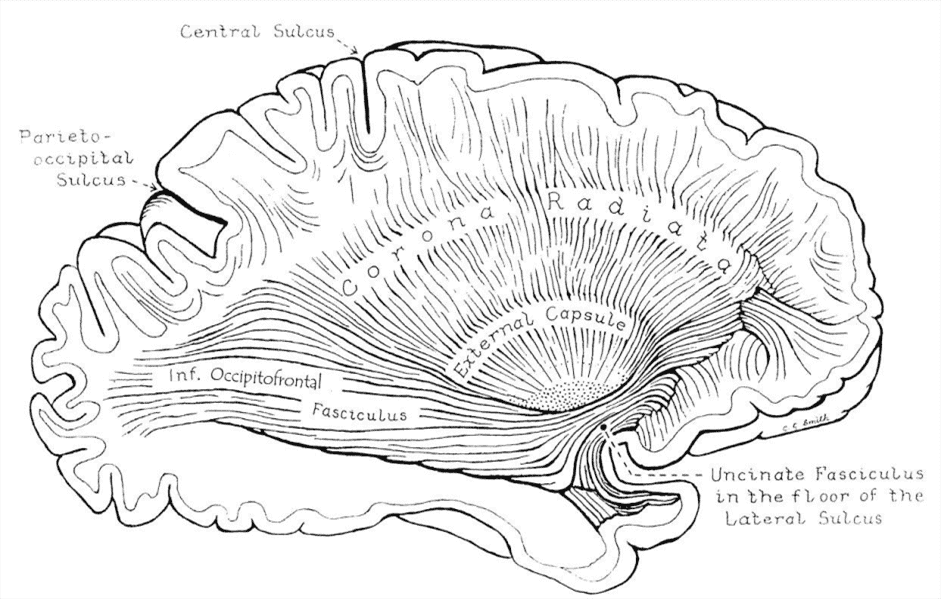 Central Sulcus
Parieto-
occipital
Sulcus
Corona Radiata
External Capsule
Inf. Occipitofrontal
Fasciculus
C C Smith
Uncinate Fasciculus
in the floor of the
Lateral Sulcus